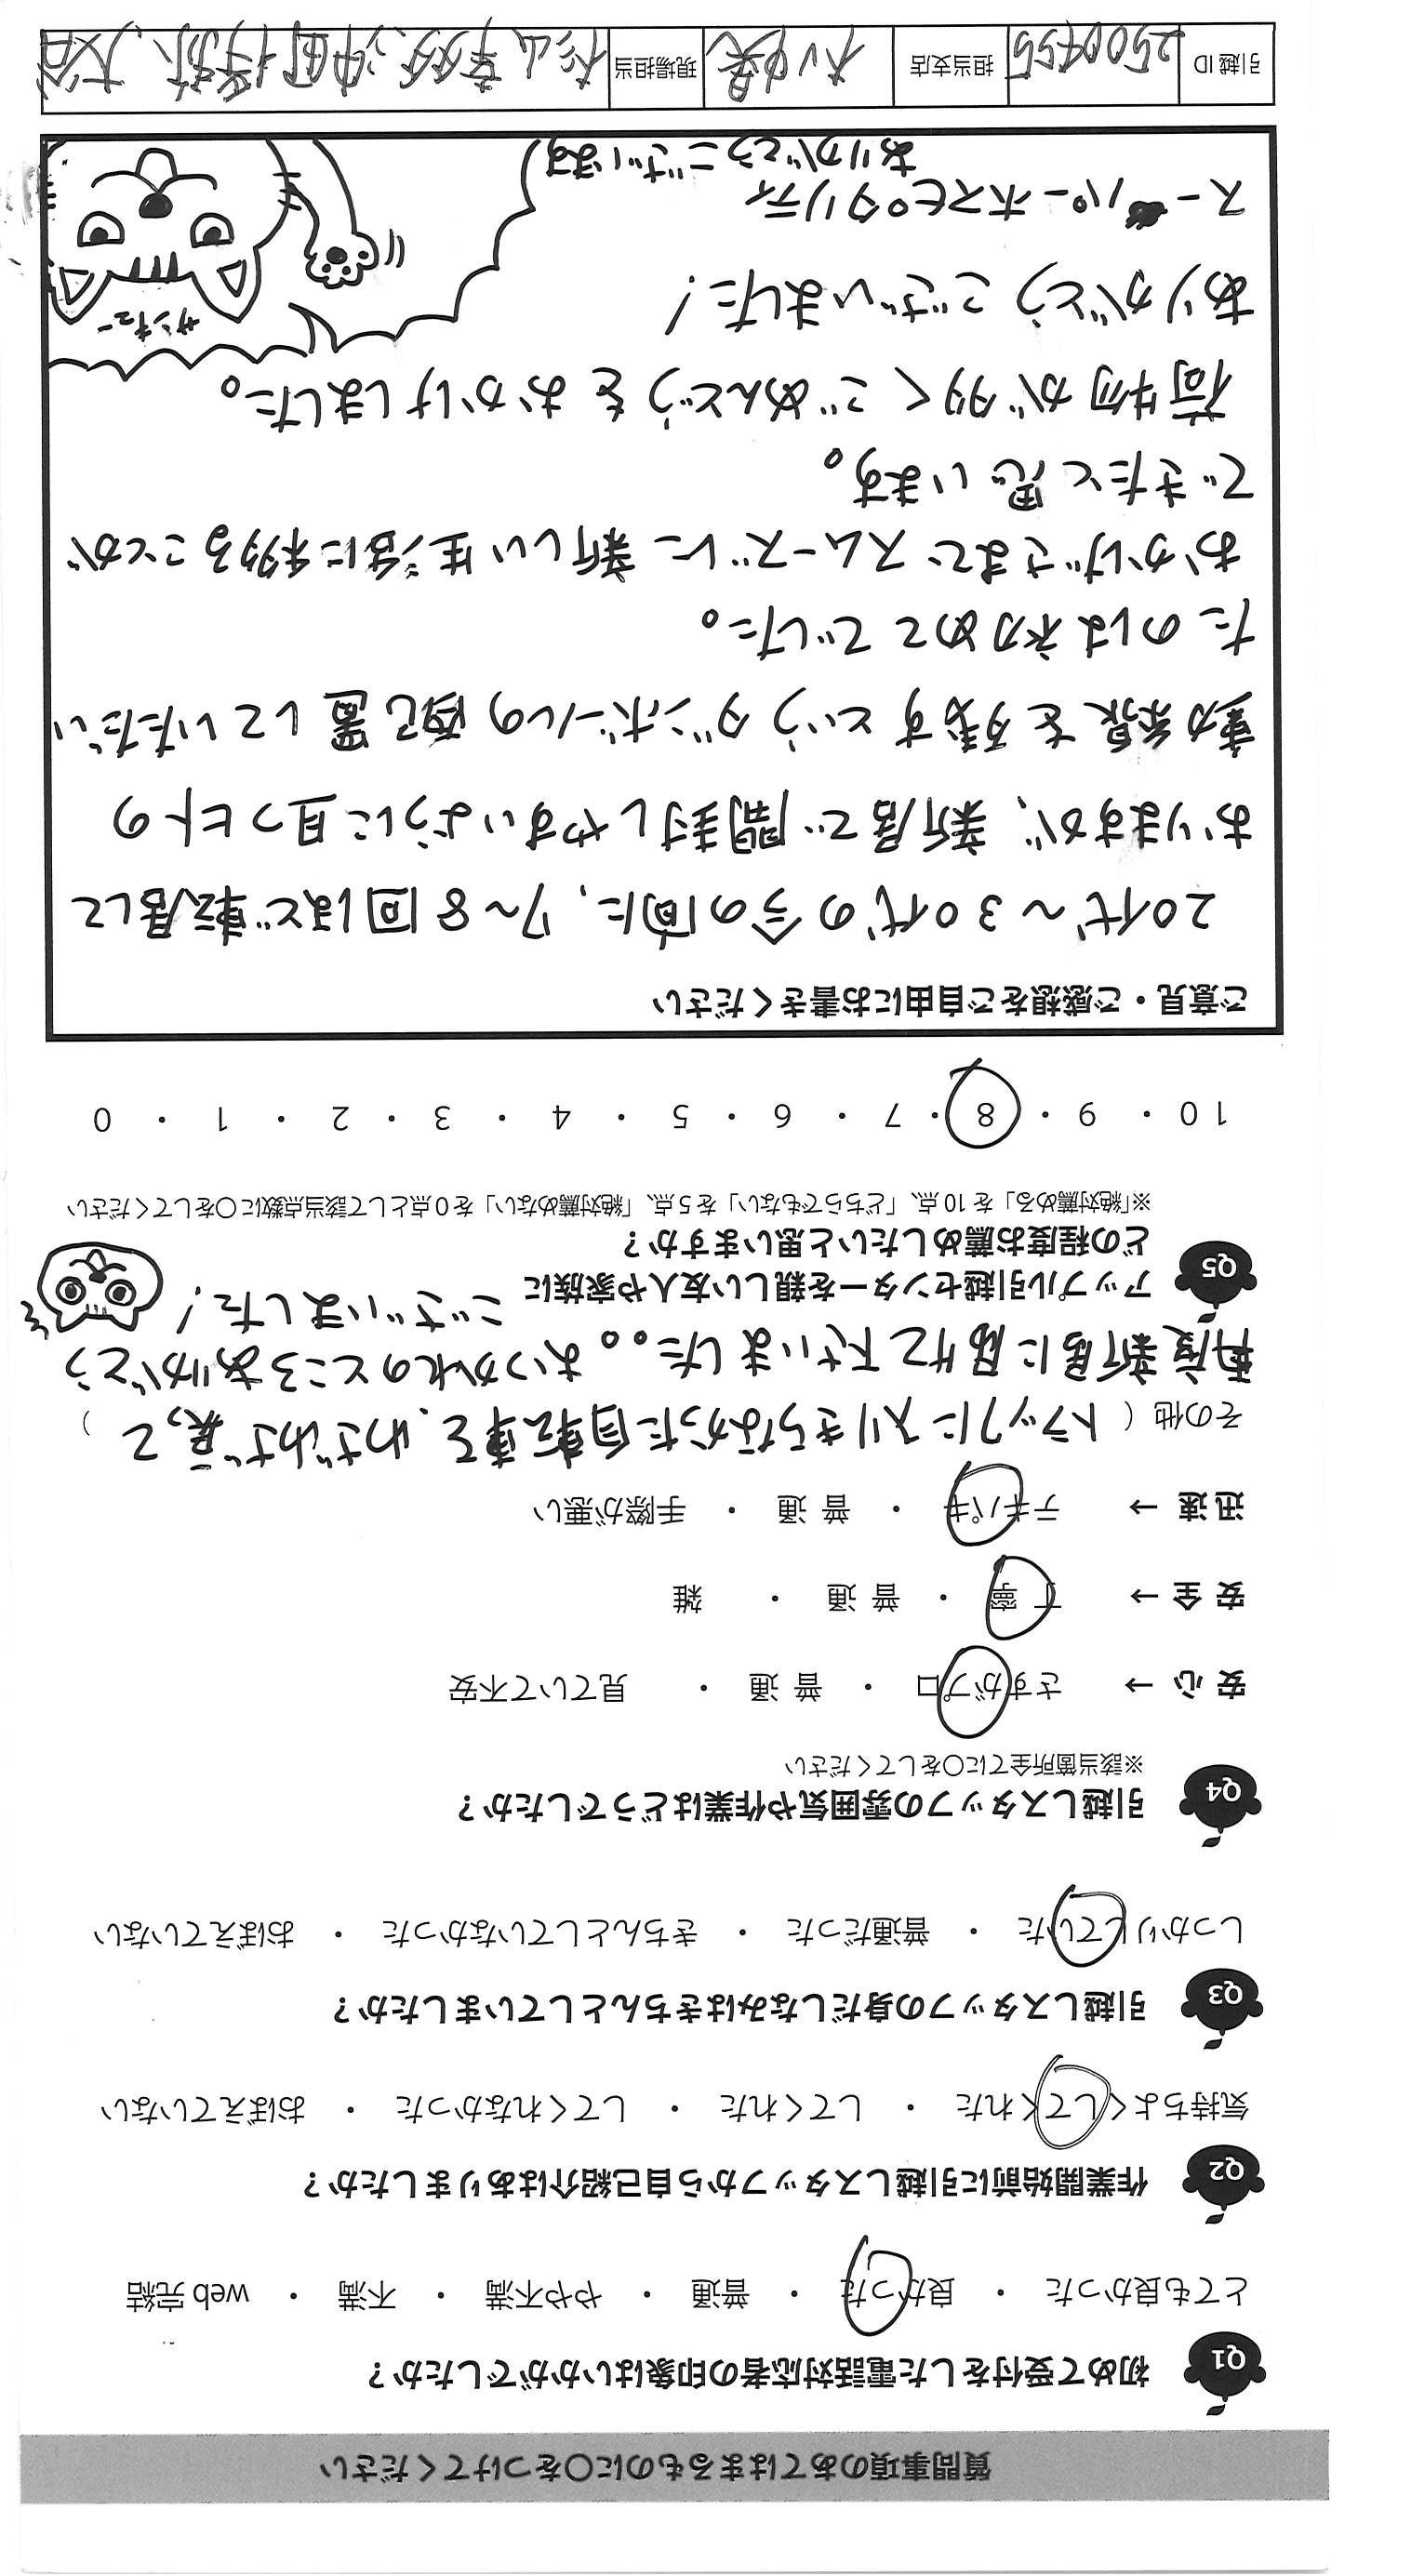 質問事項のあてはまるものに〇をつけてください
Q1 初めて受付をした電話対応者の印象はいかがでしたか?
とても良かった ・ 良かった ・ 普通 ・ やや不満 ・ 不満 ・ web 完結
Q2 作業開始前に引越しスタッフから自己紹介はありましたか?
気持ちよくしてくれた ・ してくれた ・ してくれなかった ・ おぼえていない
Q3 引越しスタッフの身だしなみはきちんとしていましたか?
しっかりしていた ・ 普通だった ・ きちんとしていなかった ・ おぼえていない
Q4 引越しスタッフの雰囲気や作業はどうでしたか?
※該当箇所全てに〇をしてください
安心 → さすがプロ ・ 普通 ・ 見ていて不安
安全 → 丁寧 ・ 普通 ・ 雑
迅速 → テキパキ ・ 普通 ・ 手際が悪い
その他 ( トラックに入りきらなかった自転車を、わざわざ戻って )
再度新居に届けて下さいました。。おつかれのところありがとう
ございました!
Q5 アップル引越センターを親しい友人や家族に
どの程度お薦めしたいと思いますか?
※「絶対薦める」を 10 点、「どちらでもない」を 5 点、「絶対薦めない」を 0 点として該当点数に〇をしてください
10 ・ 9 ・ 8 ・ 7 ・ 6 ・ 5 ・ 4 ・ 3 ・ 2 ・ 1 ・ 0
ご意見・ご感想をご自由にお書きください
20代〜30代の今の間に、7〜8回ほど転居して
おりますが、新居で開封しやすいように且つヒトの
動線を残すというダンボールの配置していただい
たのは初めてでした。
おかげさまでスムーズに新しい生活に移ることが
できたと思います。
荷物が多くごめんどうをおかけしました。
ありがとうございました!
スーパーホスピタリティ
ありがとうございます
サンキュー
引越 ID 2500455 担当支店 現場担当